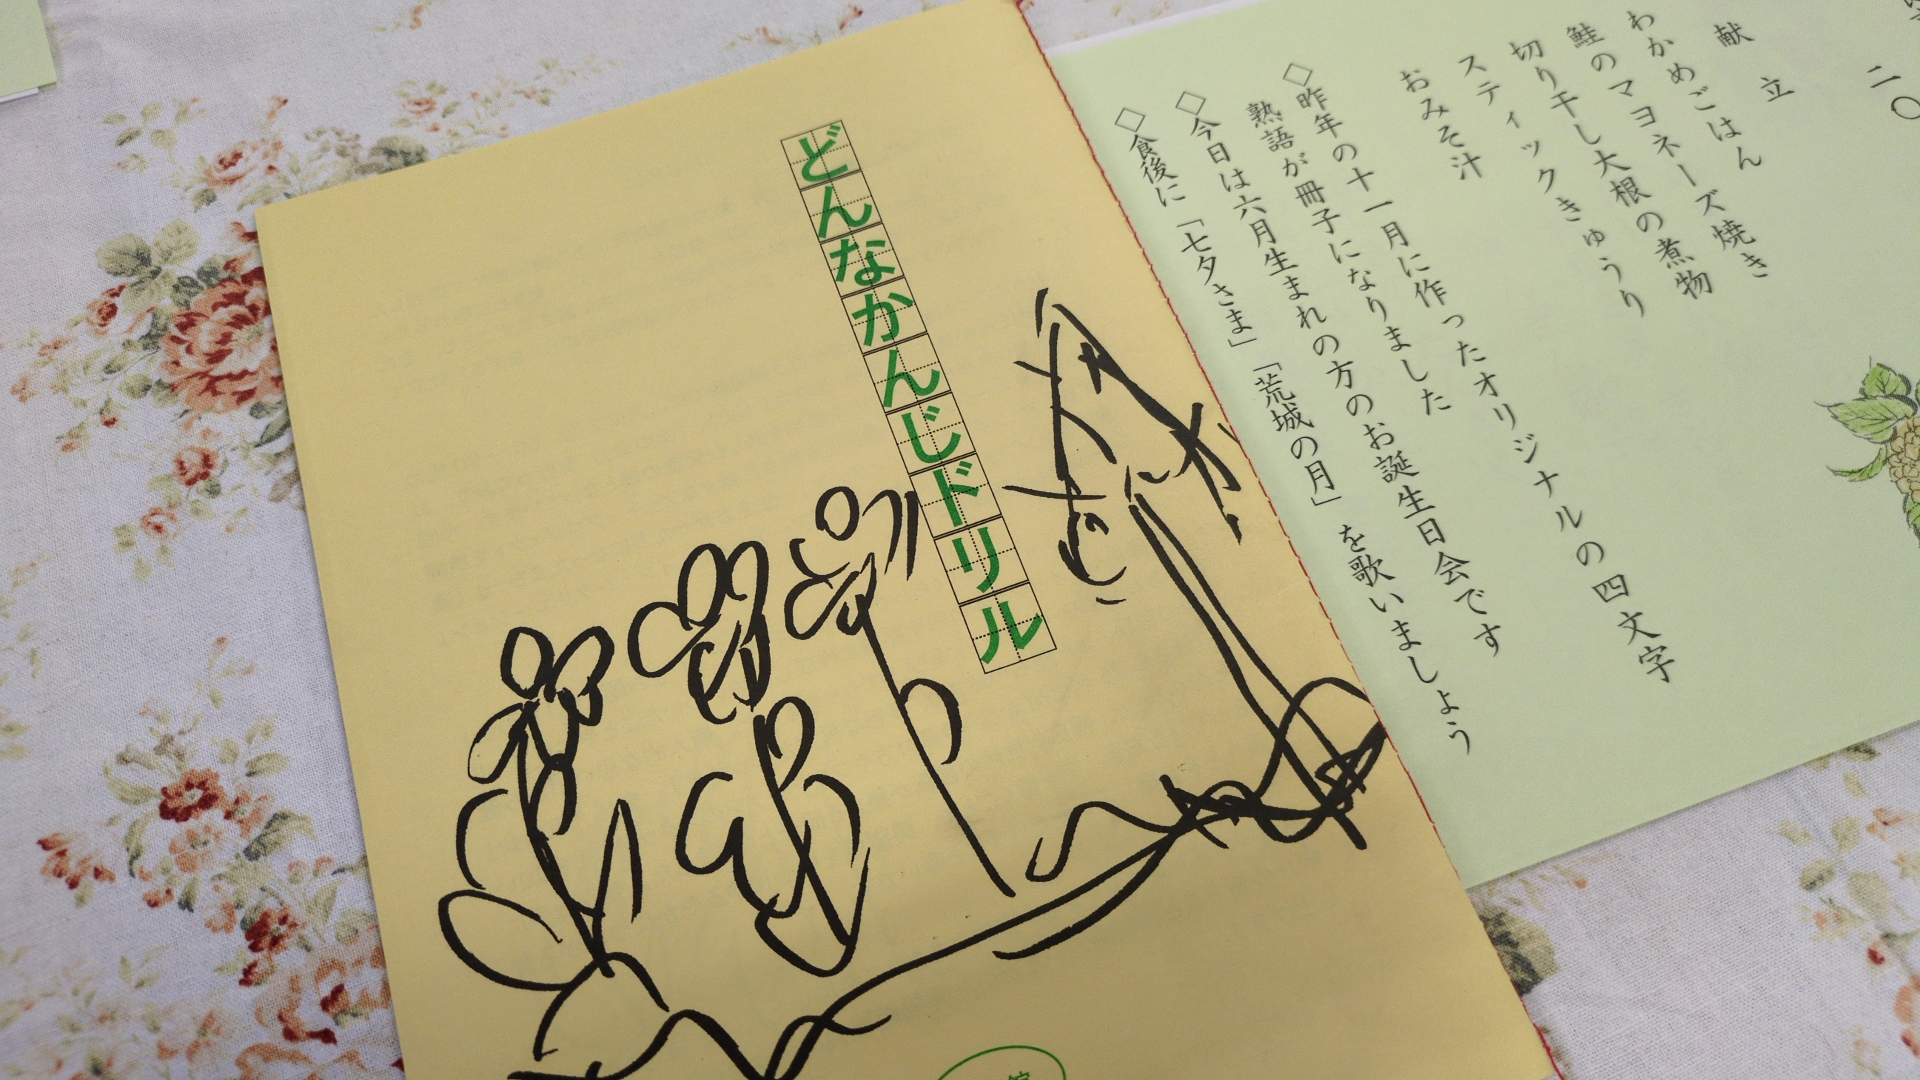 どんなかんじドリル
二〇
献立
わかめごはん
鮭のマヨネーズ焼き
切り干し大根の煮物
スティックきゅうり
おみそ汁
◇昨年の十一月に作ったオリジナルの四文字
熟語が冊子になりました
◇今日は六月生まれの方のお誕生日会です
◇食後に「七夕さま」「荒城の月」を歌いましょう